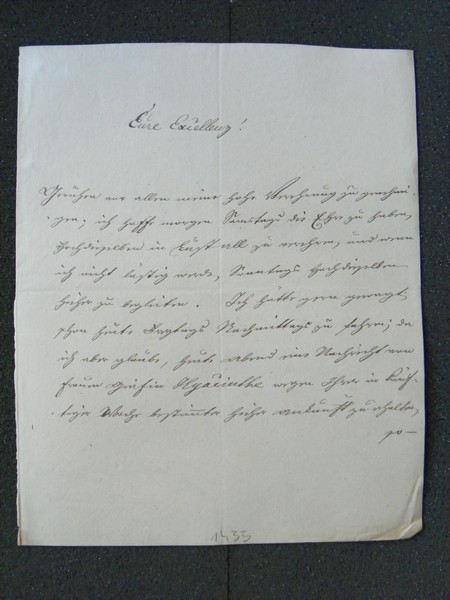 Eure Excellenz!
Geruhen vor allem meine hohe Verehrung zu genehmi-
gen; ich hoffe morgen Samstags die Ehre zu haben,
Hochdieselben in zu verehren, und wenn
ich nicht lästig werde, Sonntags Hochdieselben
hieher zu begleiten. Ich hätte gern gewagt,
schon heute Nachmittags zu fahren; da
ich aber glaube, heute Abend eine Nachricht von
Frauen Gräfin Hyacinthe wegen Ihrer in künf-
tiger Woche bestimmten hieher Ankunft zu erhalten,
so—
1433